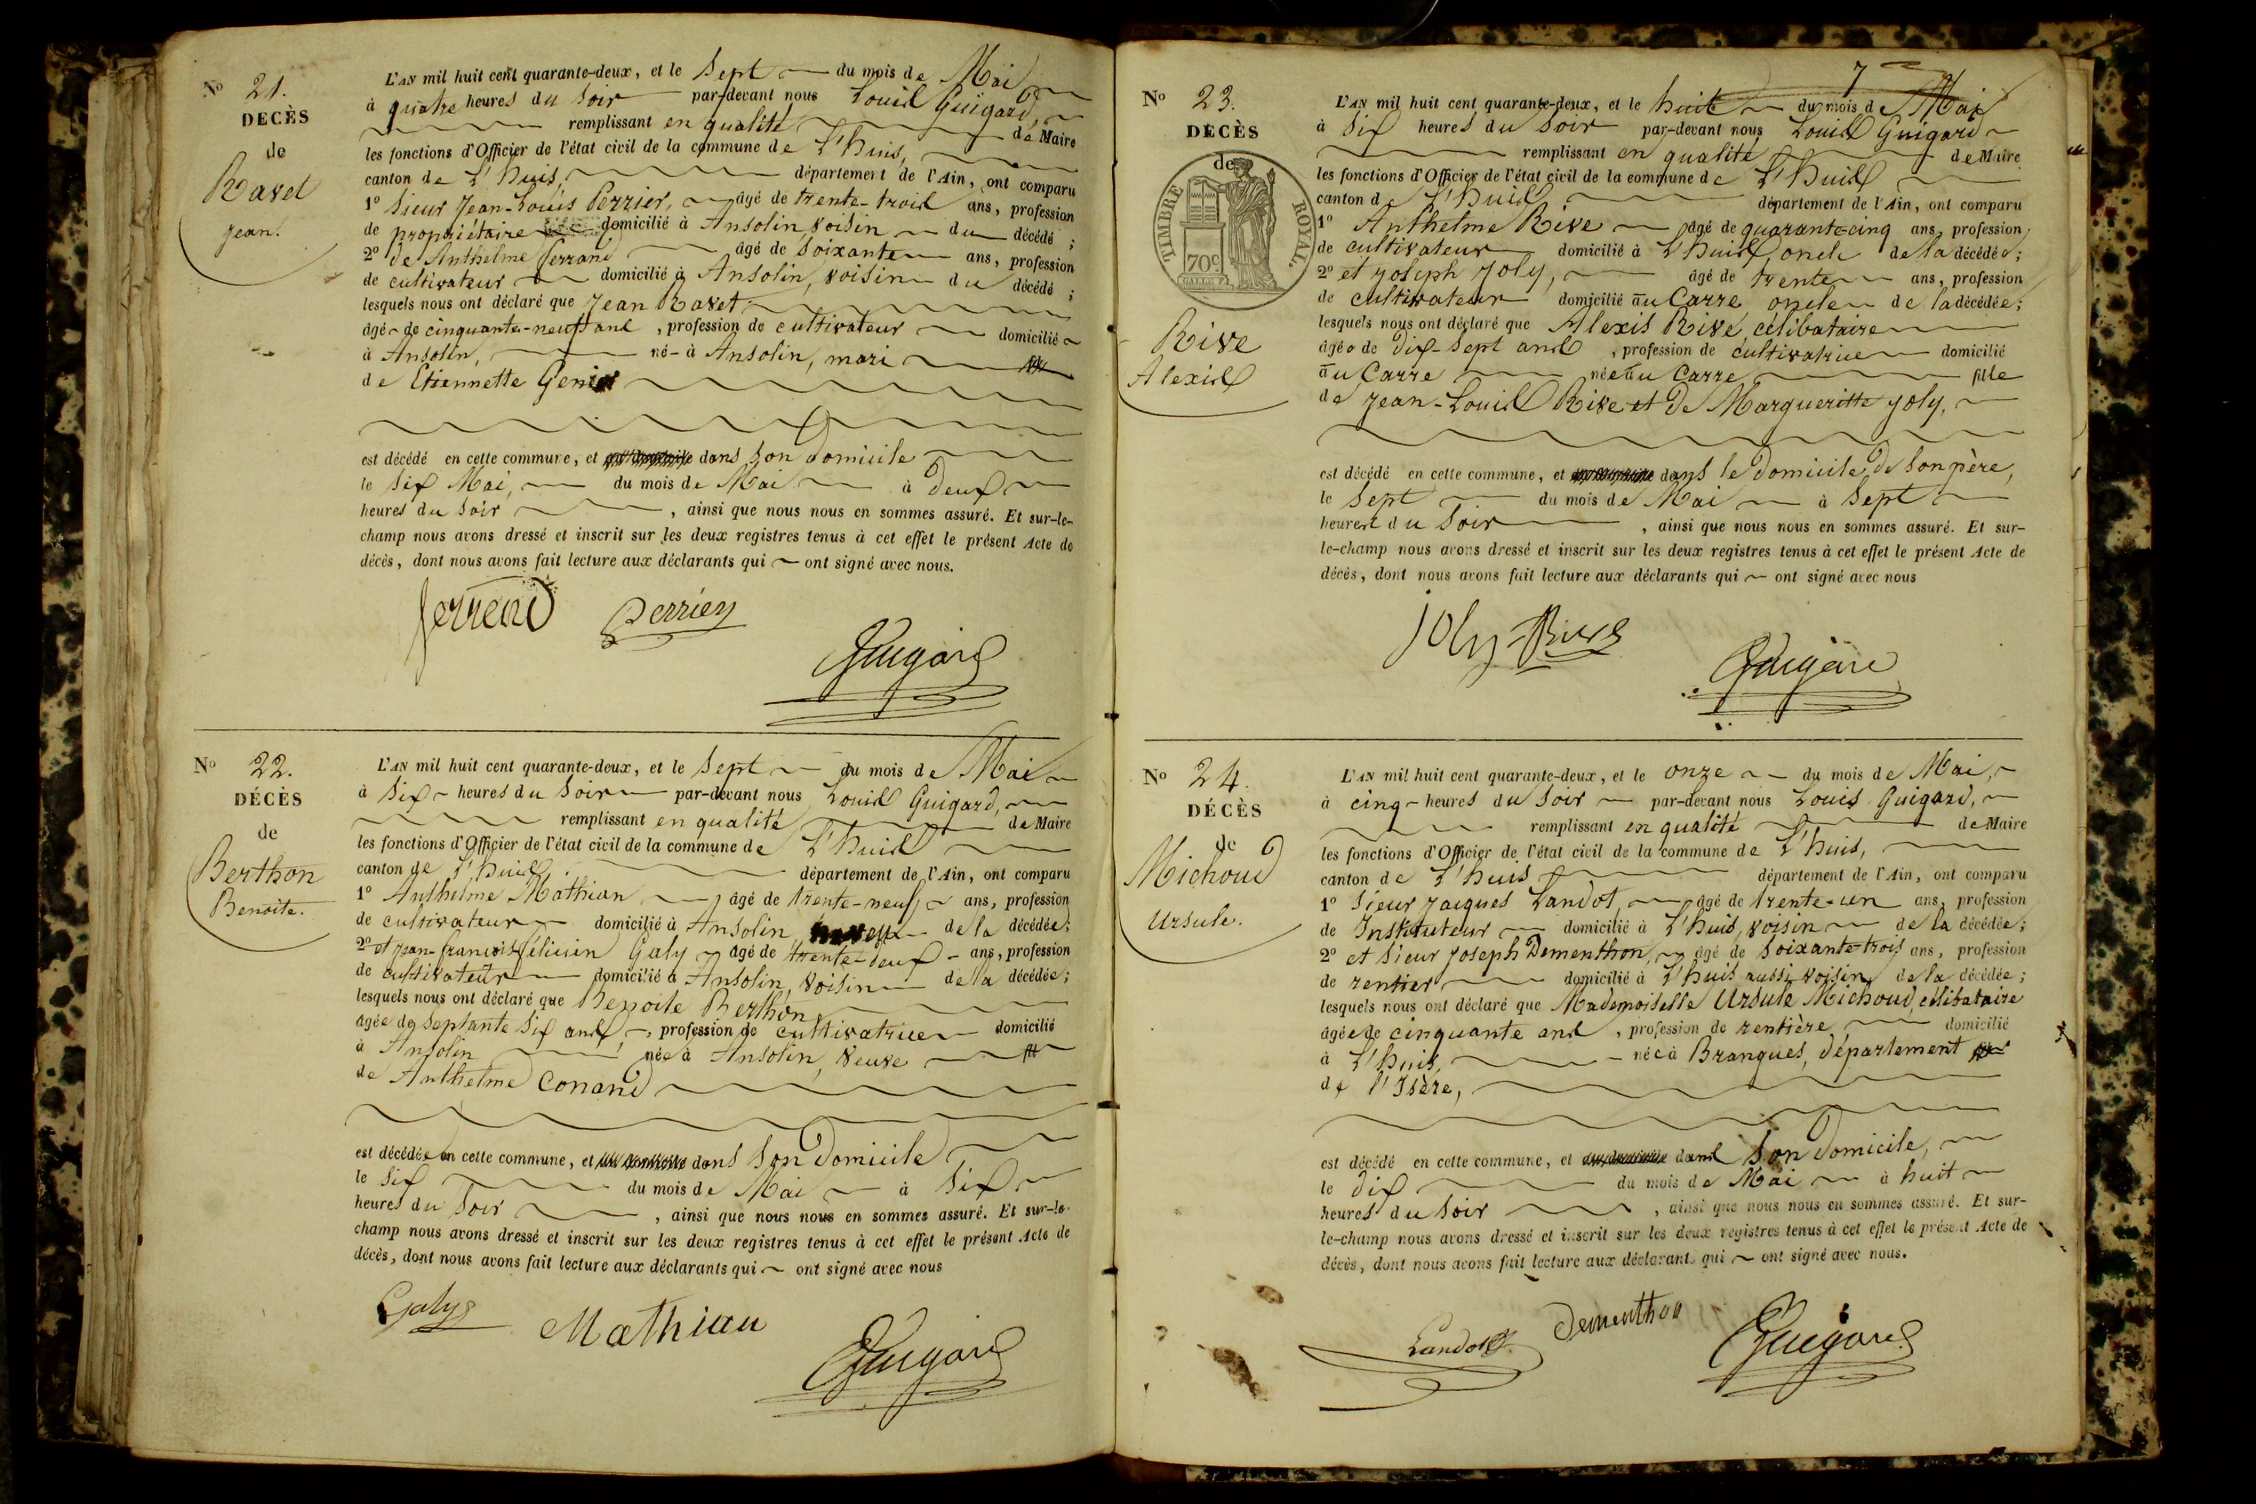 N° 21.
DECÈS
de
Ravet
Jean.
L'AN mil huit cent quarante-deux, et le Sept du mois de Mai
à quatre heures du Soir par-devant nous Louis Guigard,
remplissant en qualité de Maire
les fonctions d'Officier de l'état civil de la commune de L'huis,
canton de L'huis, département de l'Ain, ont comparu
1° Sieur Jean-Louis Perrier, âgé de trente-trois ans, profession
de propriétaire domicilié à Ansolin voisin du décédé ;
2° de Anthelme Ferrand âgé de Soixante ans, profession
de cultivateur domicilié à Ansolin, voisin du décédé ;
lesquels nous ont déclaré que Jean Ravet
âgé de cinquante-neuf ans, profession de cultivateur domicilié
à Ansolin, né à Ansolin, mari
de Etiennette
est décédé en cette commune, et dans Son Domicile
le Six Mai, du mois de Mai à Deux
heures du Soir, ainsi que nous nous en sommes assuré. Et sur-le-
champ nous avons dressé et inscrit sur les deux registres tenus à cet effet le présent Acte de
décès, dont nous avons fait lecture aux déclarants qui ont signé avec nous.
ferrend Perrier
Guigard
N° 22.
DÉCÈS
de
Berthon
Benoite.
L'AN mil huit cent quarante-deux, et le Sept du mois de Mai
à Six heures du Soir par-devant nous Louis Guigard,
remplissant en qualité de Maire
les fonctions d'Officier de l'état civil de la commune de L'huis
canton de L'huis, département de l'Ain, ont comparu
1° Anthelme Mathian âgé de trente-neuf ans, profession
de cultivateur domicilié à Ansolin de la décédée;
2° et Jean-françois félicien Galy âgé de trente-deux ans, profession
de cultivateur domicilié à Ansolin, voisin de la décédée;
lesquels nous ont déclaré que Benoite Berthon
âgée de Septante Six ans, profession de cultivatrice domicilié
à Ansolin née à Ansolin, veuve
de Anthelme Conand
est décédée en cette commune, et dans Son Domicile
le Six du mois de Mai à Six
heures du Soir, ainsi que nous nous en sommes assuré. Et sur-le-
champ nous avons dressé et inscrit sur les deux registres tenus à cet effet le présent Acte de
décès, dont nous avons fait lecture aux déclarants qui ont signé avec nous
Galy Mathian
Guigard
7
N° 23.
DÉCÈS
de
TIMBRE ROYAL.
70c
Rive
Alexis
L'AN mil huit cent quarante-deux, et le huit du mois de Mai
à Six heures du Soir par-devant nous Louis Guigard
remplissant en qualité de Maire
les fonctions d'Officier de l'état civil de la commune de L'huis
canton de L'huis département de l'Ain, ont comparu
1° Anthelme Rive âgé de quarante-cinq ans, profession
de cultivateur domicilié à L'huis, oncle de la décédée;
2° et Joseph Joly, âgé de trente ans, profession
de cultivateur domicilié au Carre, oncle de la décédée;
lesquels nous ont déclaré que Alexis Rive, célibataire
âgée de Dix-Sept ans, profession de cultivatrice domicilié
au Carre née au Carre fille
de Jean-Louis Rive et de Margueritte Joly,
est décédé en cette commune, et dans le Domicile de Son père,
le Sept du mois de Mai à Sept
heures du Soir, ainsi que nous nous en sommes assuré. Et sur-
le-champ nous avons dressé et inscrit sur les deux registres tenus à cet effet le présent Acte de
décès, dont nous avons fait lecture aux déclarants qui ont signé avec nous
joly Rive
Guigard
N° 24.
DÉCÈS
de
Michoud
Ursule.
L'AN mil huit cent quarante-deux, et le onze du mois de Mai,
à cinq heures du Soir par-devant nous Louis Guigard,
remplissant en qualité de Maire
les fonctions d'Officier de l'état civil de la commune de L'huis,
canton de L'huis département de l'Ain, ont comparu
1° Sieur Jacques Landot, âgé de trente-un ans, profession
de Instituteur domicilié à L'huis, voisin de la décédée;
2° et Sieur Joseph Dementhon, âgé de Soixante-trois ans, profession
de rentier domicilié à L'huis aussi voisin de la décédée;
lesquels nous ont déclaré que Mademoiselle Ursule Michoud, célibataire
âgée de cinquante ans, profession de rentière domicilié
à L'huis, née à Brangues, Département
de l'Isère,
est décédé en cette commune, et dans Son Domicile,
le Dix du mois de Mai à huit
heures du Soir, ainsi que nous nous en sommes assuré. Et sur-
le-champ nous avons dressé et inscrit sur les deux registres tenus à cet effet le présent Acte de
décès, dont nous avons fait lecture aux déclarants qui ont signé avec nous.
Landot Dementhon Guigard